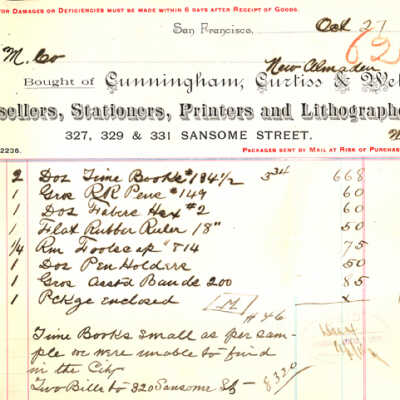 FOR DAMAGES OR DEFICIENCIES MUST BE MADE WITHIN 6 DAYS AFTER RECEIPT OF GOODS.
San Francisco, Oct 21
M. Co New Almaden
Bought of Cunningham, Curtiss & Wel
sellers, Stationers, Printers and Lithographe
327, 329 & 331 SANSOME STREET.
2236. PACKAGES SENT BY MAIL AT RISK OF PURCHAS
2 Dos Time Books #184 1/2 334 668
1 Gros RR Pens #149 60
1 Dos Fabers Hex #2 60
1 Flat Rubber Ruler 18" 50
1/4 Rm Foolscap #814 75
1 Dos Pen Holders 50
1 Gros Asstd Bands 200 85
1 Pckge enclosed x
M
#46
Time Books small as per sam-
ple we were unable to find
in the City
Two Bills to 320 Sansome St - 8320